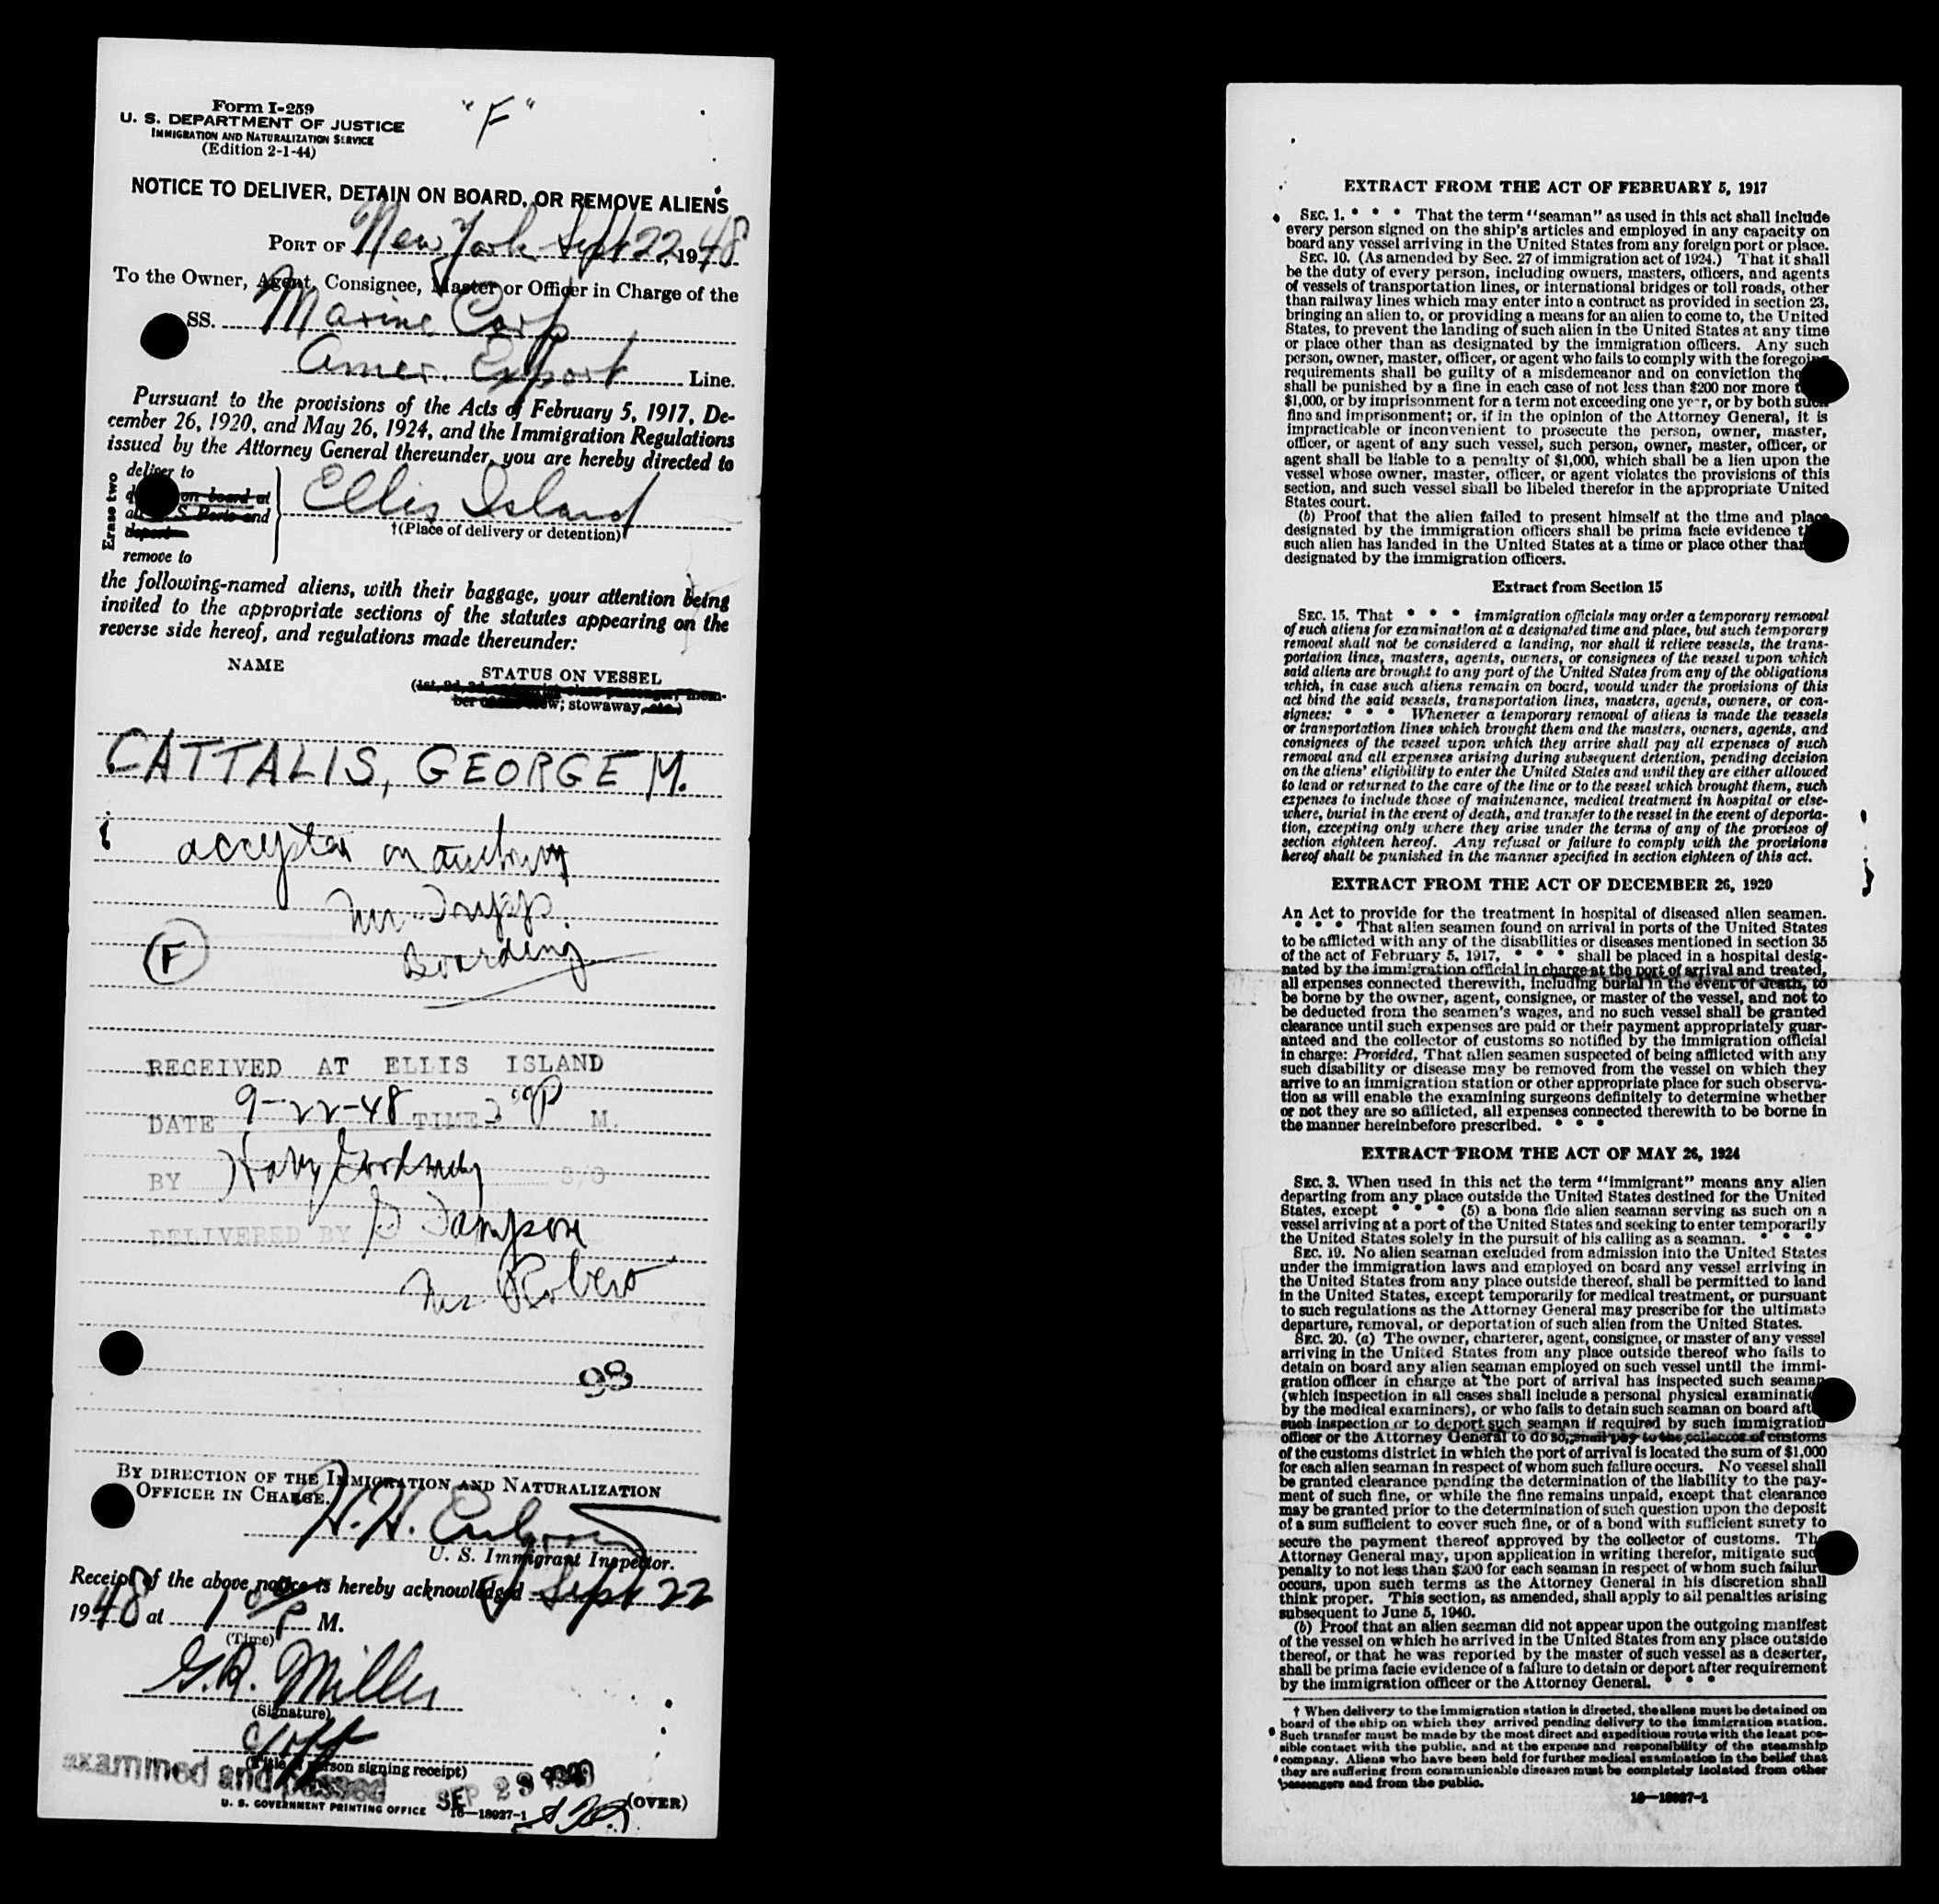 Form I-259
"F"
U. S. DEPARTMENT OF JUSTICE
IMMIGRATION AND NATURALIZATION SERVICE
(Edition 2-1-44)
NOTICE TO DELIVER, DETAIN ON BOARD, OR REMOVE ALIENS
PORT OF New York Sept 22, 1948
To the Owner, Agent, Consignee, Master or Officer in Charge of the
SS. Marine Carp
Amer. Export Line.
Pursuant to the provisions of the Acts of February 5, 1917, De-
cember 26, 1920, and May 26, 1924, and the Immigration Regulations
issued by the Attorney General thereunder, you are hereby directed to
Erase two
deliver to
on board at
S. Ports and
deport
remove to
Ellis Island
†(Place of delivery or detention)
the following-named aliens, with their baggage, your attention being
invited to the appropriate sections of the statutes appearing on the
reverse side hereof, and regulations made thereunder:
NAME
STATUS ON VESSEL
stowaway, etc.)
CATTALIS, GEORGE M.
accepted on
Mr. Tripp.
Boarding
F
RECEIVED AT ELLIS ISLAND
DATE 9-22-48 TIME P M.
BY S/O
DELIVERED BY
Mr
98
BY DIRECTION OF THE IMMIGRATION AND NATURALIZATION
OFFICER IN CHARGE.
H. H.
U. S. Immigrant Inspector.
Receipt of the above notice is hereby acknowledged Sept 22
1948 at 1 P M.
(Time)
G.R. Miller
(Signature)
(Title of person signing receipt)
examined and passed
SEP
U. S. GOVERNMENT PRINTING OFFICE 16—18027-1
(OVER)
EXTRACT FROM THE ACT OF FEBRUARY 5, 1917
SEC. 1. * * * That the term "seaman" as used in this act shall include
every person signed on the ship's articles and employed in any capacity on
board any vessel arriving in the United States from any foreign port or place.
SEC. 10. (As amended by Sec. 27 of immigration act of 1924.) That it shall
be the duty of every person, including owners, masters, officers, and agents
of vessels of transportation lines, or international bridges or toll roads, other
than railway lines which may enter into a contract as provided in section 23,
bringing an alien to, or providing a means for an alien to come to, the United
States, to prevent the landing of such alien in the United States at any time
or place other than as designated by the immigration officers. Any such
person, owner, master, officer, or agent who fails to comply with the foregoing
requirements shall be guilty of a misdemeanor and on conviction
shall be punished by a fine in each case of not less than $200 nor more
$1,000, or by imprisonment for a term not exceeding one year, or by both such
fine and imprisonment; or, if in the opinion of the Attorney General, it is
impracticable or inconvenient to prosecute the person, owner, master,
officer, or agent of any such vessel, such person, owner, master, officer, or
agent shall be liable to a penalty of $1,000, which shall be a lien upon the
vessel whose owner, master, officer, or agent violates the provisions of this
section, and such vessel shall be libeled therefor in the appropriate United
States court.
(b) Proof that the alien failed to present himself at the time and place
designated by the immigration officers shall be prima facie evidence
such alien has landed in the United States at a time or place other than
designated by the immigration officers.
Extract from Section 15
SEC. 15. That * * * immigration officials may order a temporary removal
of such aliens for examination at a designated time and place, but such temporary
removal shall not be considered a landing, nor shall it relieve vessels, the trans-
portation lines, masters, agents, owners, or consignees of the vessel upon which
said aliens are brought to any part of the United States from any of the obligations
which, in case such aliens remain on board, would under the provisions of this
act bind the said vessels, transportation lines, masters, agents, owners, or con-
signees: * * * Whenever a temporary removal of aliens is made the vessels
or transportation lines which brought them and the masters, owners, agents, and
consignees of the vessel upon which they arrive shall pay all expenses of such
removal and all expenses arising during subsequent detention, pending decision
on the aliens' eligibility to enter the United States and until they are either allowed
to land or returned to the care of the line or to the vessel which brought them, such
expenses to include those of maintenance, medical treatment in hospital or else-
where, burial in the event of death, and transfer to the vessel in the event of deporta-
tion, excepting only where they arise under the terms of any of the provisos of
section eighteen hereof. Any refusal or failure to comply with the provisions
hereof shall be punished in the manner specified in section eighteen of this act.
EXTRACT FROM THE ACT OF DECEMBER 26, 1920
An Act to provide for the treatment in hospital of diseased alien seamen.
* * * That alien seamen found on arrival in ports of the United States
to be afflicted with any of the disabilities or diseases mentioned in section 35
of the act of February 5, 1917, * * * shall be placed in a hospital desig-
nated by the immigration official in charge at the port of arrival and treated,
all expenses connected therewith, including burial in the event of death, to
be borne by the owner, agent, consignee, or master of the vessel, and not to
be deducted from the seamen's wages, and no such vessel shall be granted
clearance until such expenses are paid or their payment appropriately guar-
anteed and the collector of customs so notified by the immigration official
in charge: Provided, That alien seamen suspected of being afflicted with any
such disability or disease may be removed from the vessel on which they
arrive to an immigration station or other appropriate place for such observa-
tion as will enable the examining surgeons definitely to determine whether
or not they are so afflicted, all expenses connected therewith to be borne in
the manner hereinbefore prescribed. * * *
EXTRACT FROM THE ACT OF MAY 26, 1924
SEC. 3. When used in this act the term "immigrant" means any alien
departing from any place outside the United States destined for the United
States, except * * * (5) a bona fide alien seaman serving as such on a
vessel arriving at a port of the United States and seeking to enter temporarily
the United States solely in the pursuit of his calling as a seaman. * * *
SEC. 19. No alien seaman excluded from admission into the United States
under the immigration laws and employed on board any vessel arriving in
the United States from any place outside thereof, shall be permitted to land
in the United States, except temporarily for medical treatment, or pursuant
to such regulations as the Attorney General may prescribe for the ultimate
departure, removal, or deportation of such alien from the United States.
SEC. 20. (a) The owner, charterer, agent, consignee, or master of any vessel
arriving in the United States from any place outside thereof who fails to
detain on board any alien seaman employed on such vessel until the immi-
gration officer in charge at the port of arrival has inspected such seaman
(which inspection in all cases shall include a personal physical examination
by the medical examiners), or who fails to detain such seaman on board after
such inspection or to deport such seaman if required by such immigration
officer or the Attorney General to do so, shall pay to the collector of customs
of the customs district in which the port of arrival is located the sum of $1,000
for each alien seaman in respect of whom such failure occurs. No vessel shall
be granted clearance pending the determination of the liability to the pay-
ment of such fine, or while the fine remains unpaid, except that clearance
may be granted prior to the determination of such question upon the deposit
of a sum sufficient to cover such fine, or of a bond with sufficient surety to
secure the payment thereof approved by the collector of customs. The
Attorney General may, upon application in writing therefor, mitigate such
penalty to not less than $200 for each seaman in respect of whom such failure
occurs, upon such terms as the Attorney General in his discretion shall
think proper. This section, as amended, shall apply to all penalties arising
subsequent to June 5, 1940.
(b) Proof that an alien seaman did not appear upon the outgoing manifest
of the vessel on which he arrived in the United States from any place outside
thereof, or that he was reported by the master of such vessel as a deserter,
shall be prima facie evidence of a failure to detain or deport after requirement
by the immigration officer or the Attorney General. * * *
† When delivery to the immigration station is directed, the aliens must be detained on
board of the ship on which they arrived pending delivery to the immigration station.
Such transfer must be made by the most direct and expeditious route with the least pos-
sible contact with the public, and at the expense and responsibility of the steamship
company. Aliens who have been held for further medical examination in the belief that
they are suffering from communicable diseases must be completely isolated from other
passengers and from the public.
16—18027-1